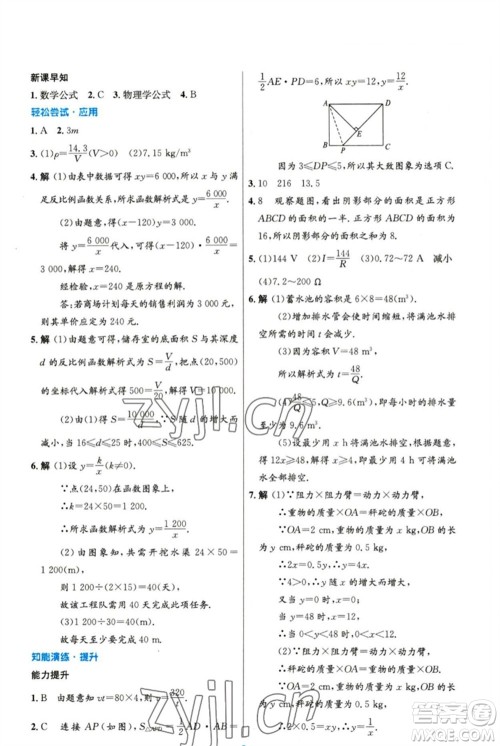 新课早知
1. 数学公式 2. C 3. 物理学公式 4. B
轻松尝试·应用
1. A 2. 3m
3. (1)ρ=14.3/V(V>0) (2)7.15 kg/m³
4. 解 (1)由表中数据可得 xy=6 000,x 与 y 满
足反比例函数关系,所求函数解析式为 y=6 000/x.
(2)由题意,得(x-120)y=3 000,
将 y=6 000/x 代入,可得(x-120)·6 000/x=
3 000,解得 x=240.
经检验, x=240 是原方程的解.
答:若商场计划每天的销售利润为3 000元,
则其单价应定为 240 元.
5. 解 (1)由题意,得储存室的底面积 S 与其深度
d 的反比例函数解析式为 S=V/d,把点(20,500)
的坐标代入解析式得 500=V/20,解得 V=10 000.
(2)由(1)得 S=10 000/d,S 随 d 的增大而
减小.当 16≤d≤25 时,400≤S≤625.
6. 解 (1)设 y=k/x(k≠0).
∵点(24,50)在函数图象上,
∴k=1 200.
∴所求函数解析式为 y=1 200/x.
(2)由图象知,共需开挖水渠 24×50=1 200
(m),
则 1 200÷(2×15)=40(天).
故该工程队需用 40 天才能完成此项任务.
(3)1 200÷30=40(m).
故每天至少要完成 40 m.
知能演练·提升
能力提升
1. B 由题意知 vt=80×4,则 v=320/t.
2. C 连接 AP(如图),S△APD=1/2AD·AB=
1/2AE·PD=6,所以 xy=12,故 y=12/x.
A D
E
B P C
因为 3≤DP≤5,所以其大致图象应选项 C.
3. 10 216 13.5
4. 8 观察题图,看出阴影部分的面积为正方形
ABCD 的面积的一半.正方形 ABCD 的面积为
16,所以阴影部分的面积和为 8.
5. (1)144 V (2)I=144/R (3)0.72~72 A 减小
(4)7.2~200 Ω
6. 解 (1)蓄水池的容积是 6×8=48(m³).
(2)增加排水管会使时间缩短,将满池水排
空所需的时间 t 会减少.
(3)所求解析式为 t=48/Q.
(4)48/Q≤5,Q≥9.6(m³),即每小时的排水量
至少为 9.6 m³.
(5)设最少用 x h 可将满池水全部排空,则
12x=48,解得 x=4(h),即最少用 4 h 可将满池
水全部排空.
7. 解 (1)∵阻力×阻力臂=动力×动力臂,
∴重物的质量×OA=秤砣的质量×OB.
∵OA=2 cm,重物的质量为 x kg,OB 为
y cm,秤砣的质量为 0.5 kg,
∴2x=0.5y,∴y=4x.
∵4>0,∴y 随 x 的增大而增大.
∵当 y=0 时,x=0;当 y=48 时,x=12,
∴0<x<12.
(2)∵阻力×阻力臂=动力×动力臂,
∴秤砣的质量×OA=重物的质量×OB.
∵OA=2 cm,重物的质量为 x kg,OB 为
y cm,秤砣的质量为 0.5 kg,
∴2×0.5=xy,∴y=1/x.
zyjl.cn
zyjl.cn
答案圈
MXQE.COM